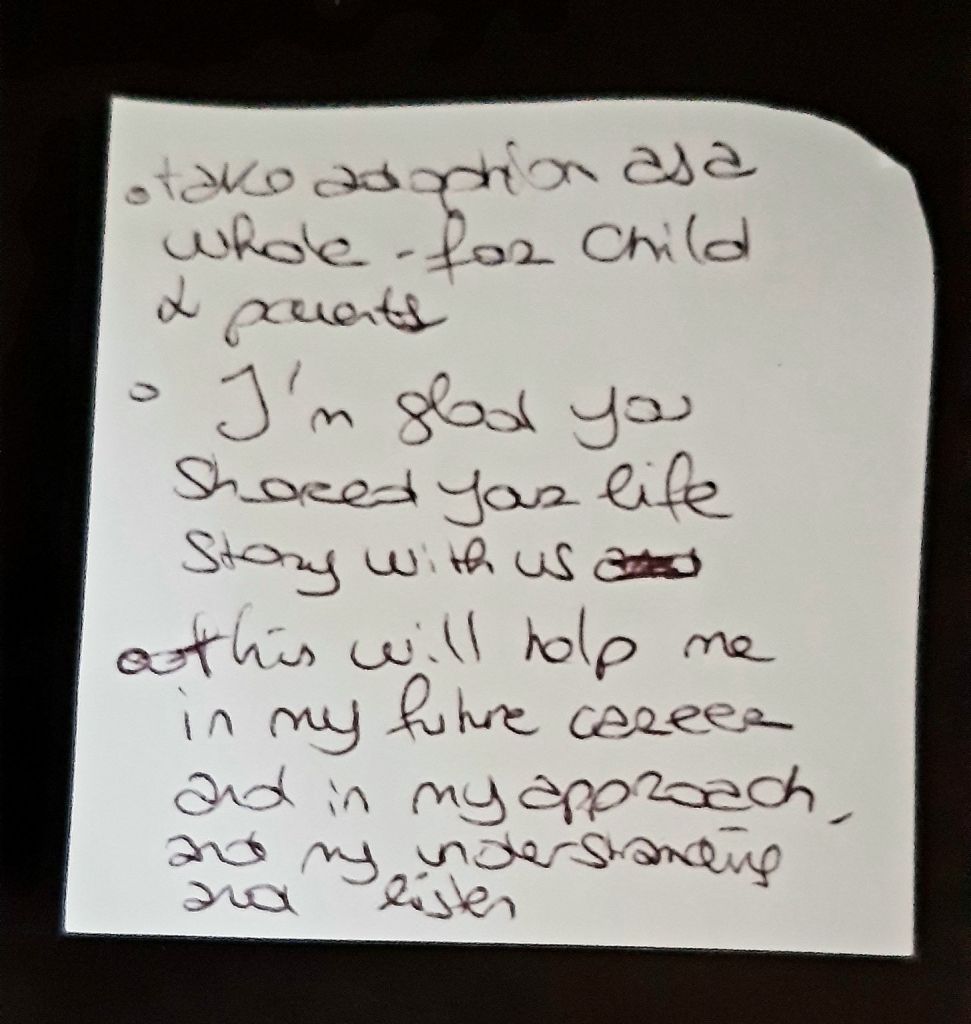 • take adoption as a
whole - for child
& parents
• I'm glad you
shared your life
story with us
this will help me
in my future career
and in my approach,
and my understanding
and listen